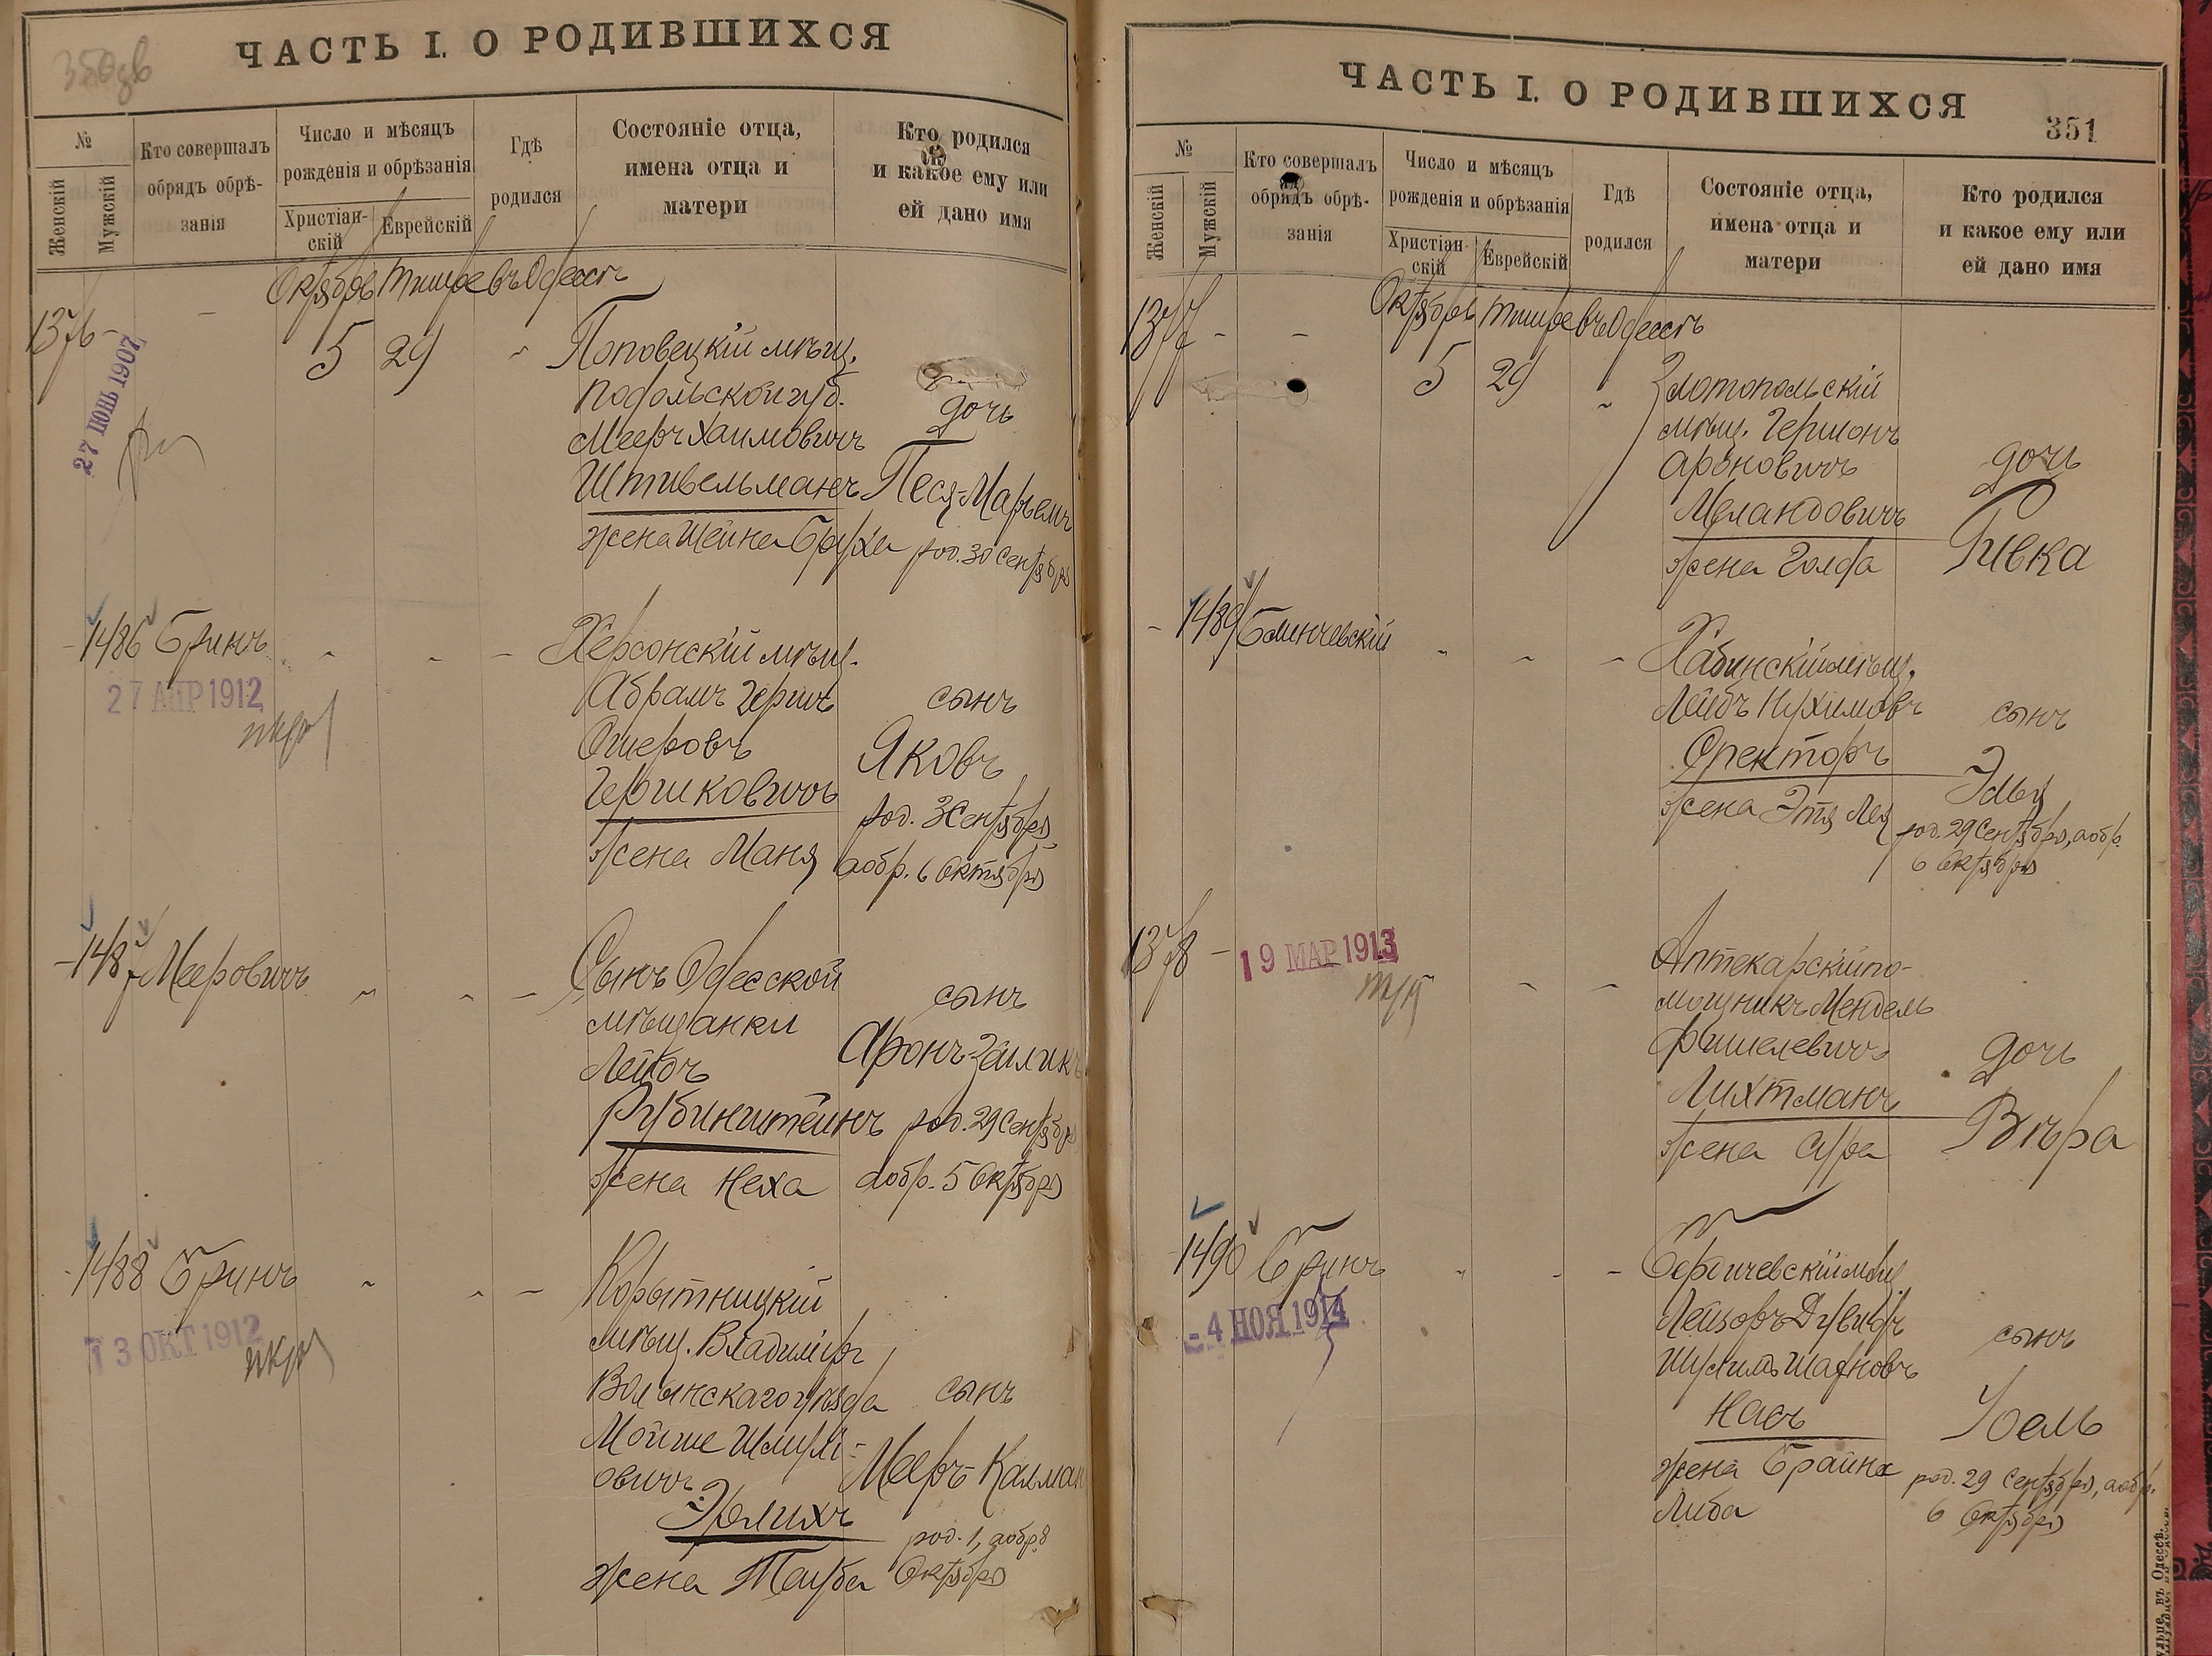 350об
ЧАСТЬ I. О РОДИВШИХСЯ
№
Женскій
Мужскій
Кто совершалъ
обрядъ обрѣ-
занія
Число и мѣсяцъ
рожденія и обрѣзанія
Христіан-
скій
Еврейскій
Гдѣ
родился
Состояніе отца,
имена отца и
матери
Кто родился
и какое ему или
ей дано имя
Октябрь Тишре въ Одессѣ
1376 - -
27 ІЮНЬ 1907
5 29 "
Поповецкій мѣщ.
Подольской губ.
Мееръ Хаимовичъ
Штивельманъ
жена Шейна Бруха
дочь
Песя-Марьемъ
род. 30 Сентября
- 1486 Бринъ " " -
27 АПР 1912
Херсонскій мѣщ.
Абрамъ Гершъ
Ошеровъ
Гершковичъ
жена Маня
сынъ
Яковъ
род. Сентября
а обр. 6 Октября
- 1487 Мееровичъ " " -
Сынъ Одесской
мѣщанки
Лейбъ
Рубинштейнъ
жена Неха
сынъ
Аронъ-Зейликъ
род. 29 Сентября
а обр. 5 Октября
- 1488 Бринъ " " -
13 ОКТ 1912
Корытницкій
мѣщ. Владимиръ
Волынскаго уѣзда
Мойше Шмуль-
овичъ
Эрлихъ
жена Тауба
сынъ
Мееръ-Калман
род. 1, а обр. 8
Октября
ЧАСТЬ I. О РОДИВШИХСЯ
351
№
Женскій
Мужскій
Кто совершалъ
обрядъ обрѣ-
занія
Число и мѣсяцъ
рожденія и обрѣзанія
Христіан-
скій
Еврейскій
Гдѣ
родился
Состояніе отца,
имена отца и
матери
Кто родился
и какое ему или
ей дано имя
Октябрь Тишре въ Одессѣ
1377 - -
5 29 "
Златопольскій
мѣщ. Гершонъ
Ароновичъ
Меландовичъ
жена Голда
дочь
Ривка
- 1489 Блинчевскій " " -
Хабинскій мѣщ.
Лейбъ Нухимовъ
Спекторъ
жена Этя Лея
сынъ
Эля
род. 29 Сентября, а обр.
6 Октября
1378 -
19 МАР 1913
" "
Аптекарскій по-
мощникъ Мендель
Фишелевичъ
Лихтманъ
жена Сура
дочь
Вѣра
- 1490 Бринъ " " -
-4 НОЯ 1914
Бердичевскій мѣщ
Лейзоръ Дувидъ
Шулимъ
Насъ
жена Брайна
Либа
сынъ
Іоель
род. 29 Сентября, а обр.
6 Октября
въ Одессѣ.